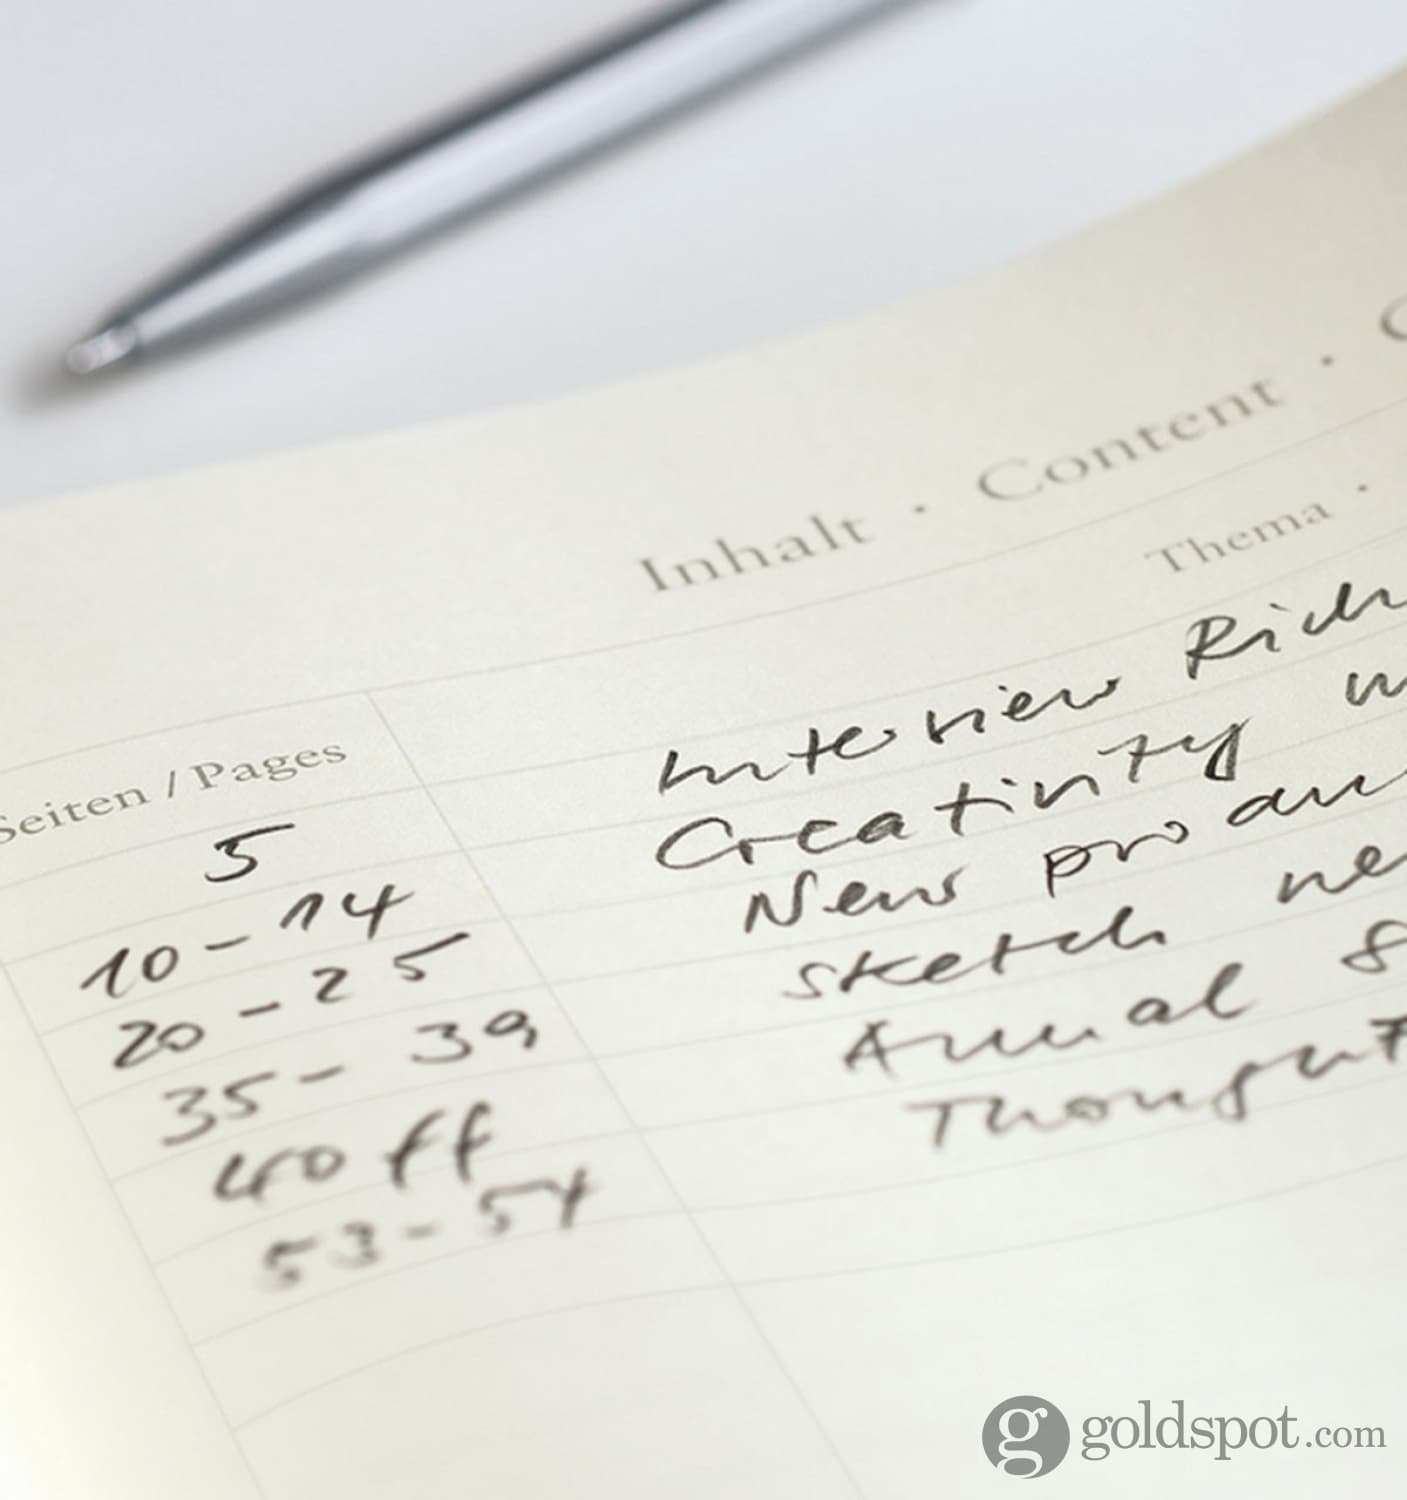 Inhalt · Content ·
Thema ·
Seiten / Pages
5 Interview
10 - 14 Creativity
20 - 25 New
35 - 39 Sketch
40 ff Annual
53 - 54
goldspot.com